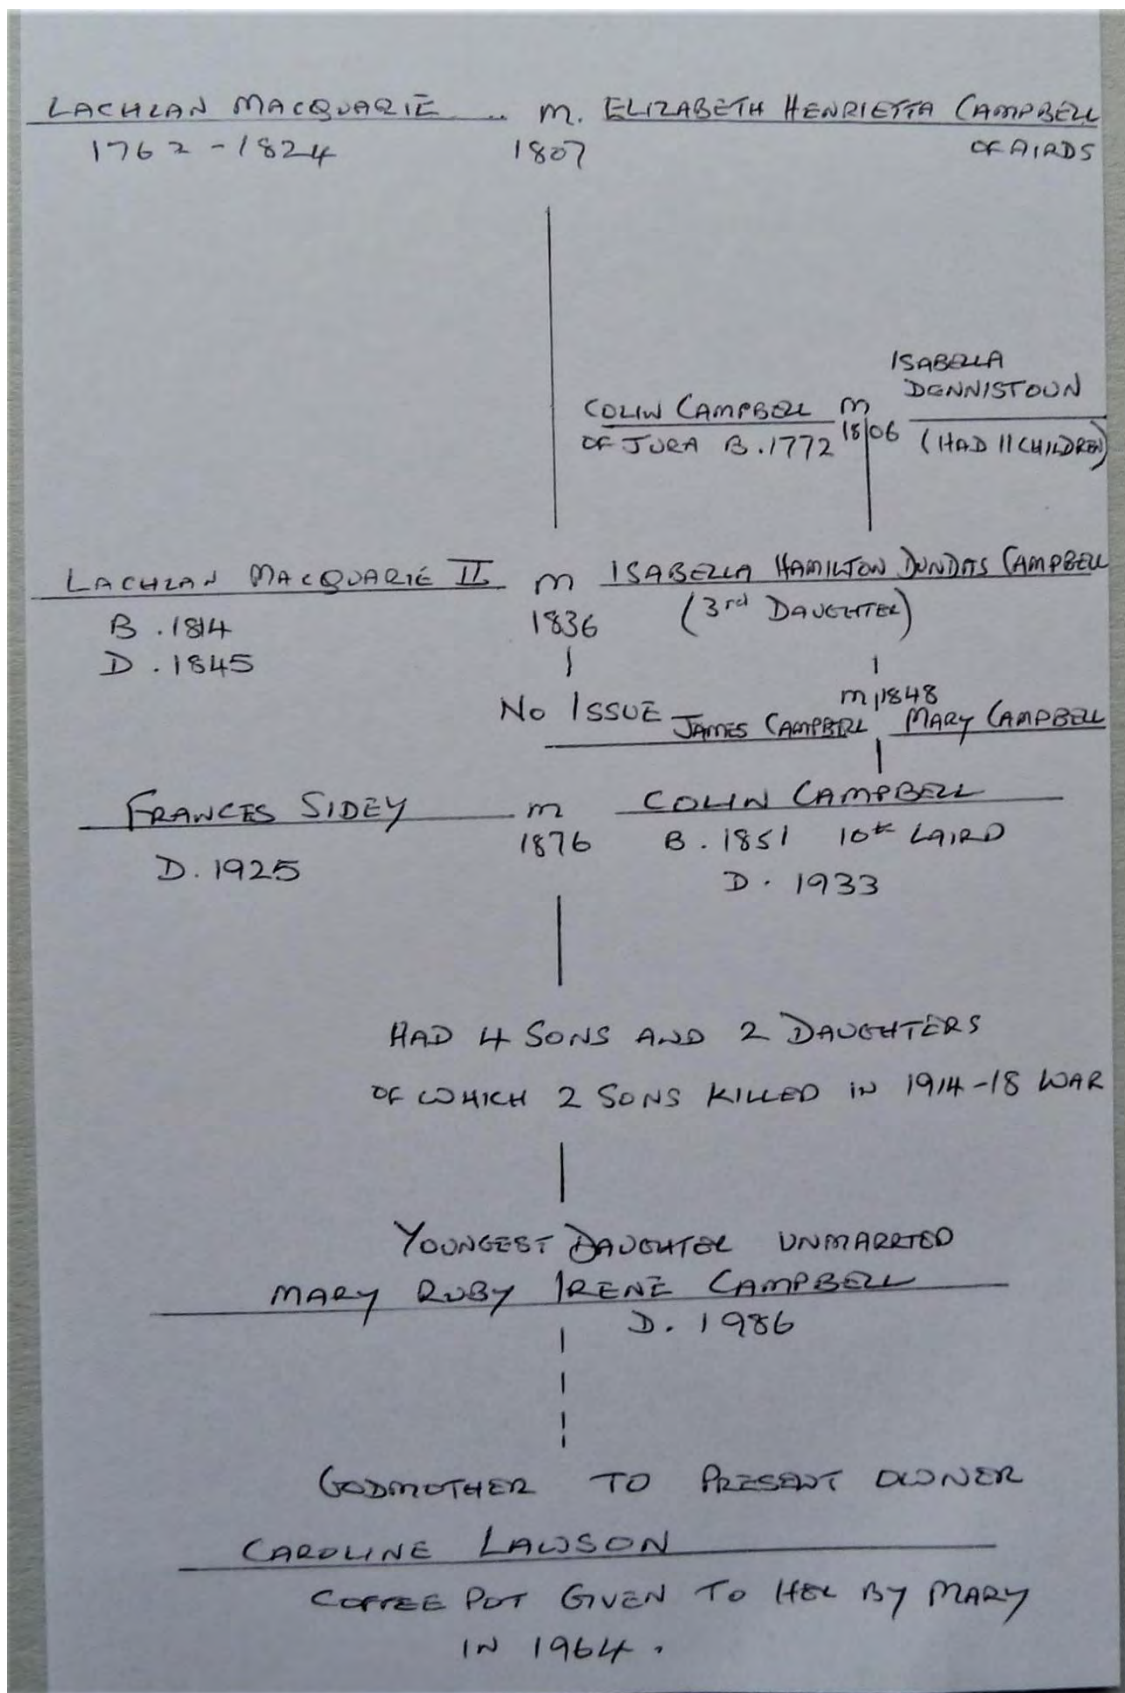 LACHLAN MACQUARIE .. m. ELIZABETH HENRIETTA CAMPBELL
1762 - 1824 1807 OF AIRDS
ISABELLA
DENNISTOUN
COLIN CAMPBELL m
OF JURA B. 1772 1806 (HAD 11 CHILDREN)
LACHLAN MACQUARIE II m ISABELLA HAMILTON DUNDAS CAMPBELL
B. 1814 1836 (3rd DAUGHTER)
D. 1845
NO ISSUE m 1848
JAMES CAMPBELL MARY CAMPBELL
FRANCES SIDEY m COLIN CAMPBELL
D. 1925 1876 B. 1851 10th LAIRD
D. 1933
HAD 4 SONS AND 2 DAUGHTERS
OF WHICH 2 SONS KILLED IN 1914-18 WAR
YOUNGEST DAUGHTER UNMARRIED
MARY RUBY IRENE CAMPBELL
D. 1986
GODMOTHER TO PRESENT OWNER
CAROLINE LAWSON
COFFEE POT GIVEN TO HER BY MARY
IN 1964.